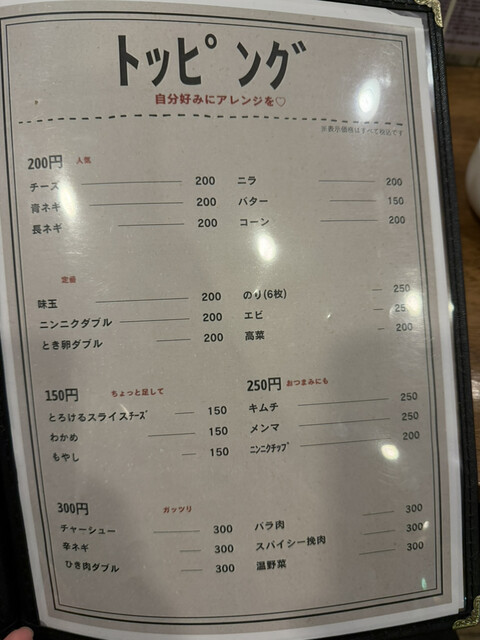 トッピング
自分好みにアレンジを♡
※表示価格はすべて税込です
200円 人気
チーズ 200
青ネギ 200
長ネギ 200
ニラ 200
バター 150
コーン 200
定番
味玉 200
ニンニクダブル 200
とき卵ダブル 200
のり(6枚) 250
エビ 25
高菜 200
150円 ちょっと足して
とろけるスライスチーズ 150
わかめ 150
もやし 150
250円 おつまみにも
キムチ 250
メンマ 250
ニンニクチップ 200
300円 ガッツリ
チャーシュー 300
辛ネギ 300
ひき肉ダブル 300
バラ肉 300
スパイシー挽肉 300
温野菜 300